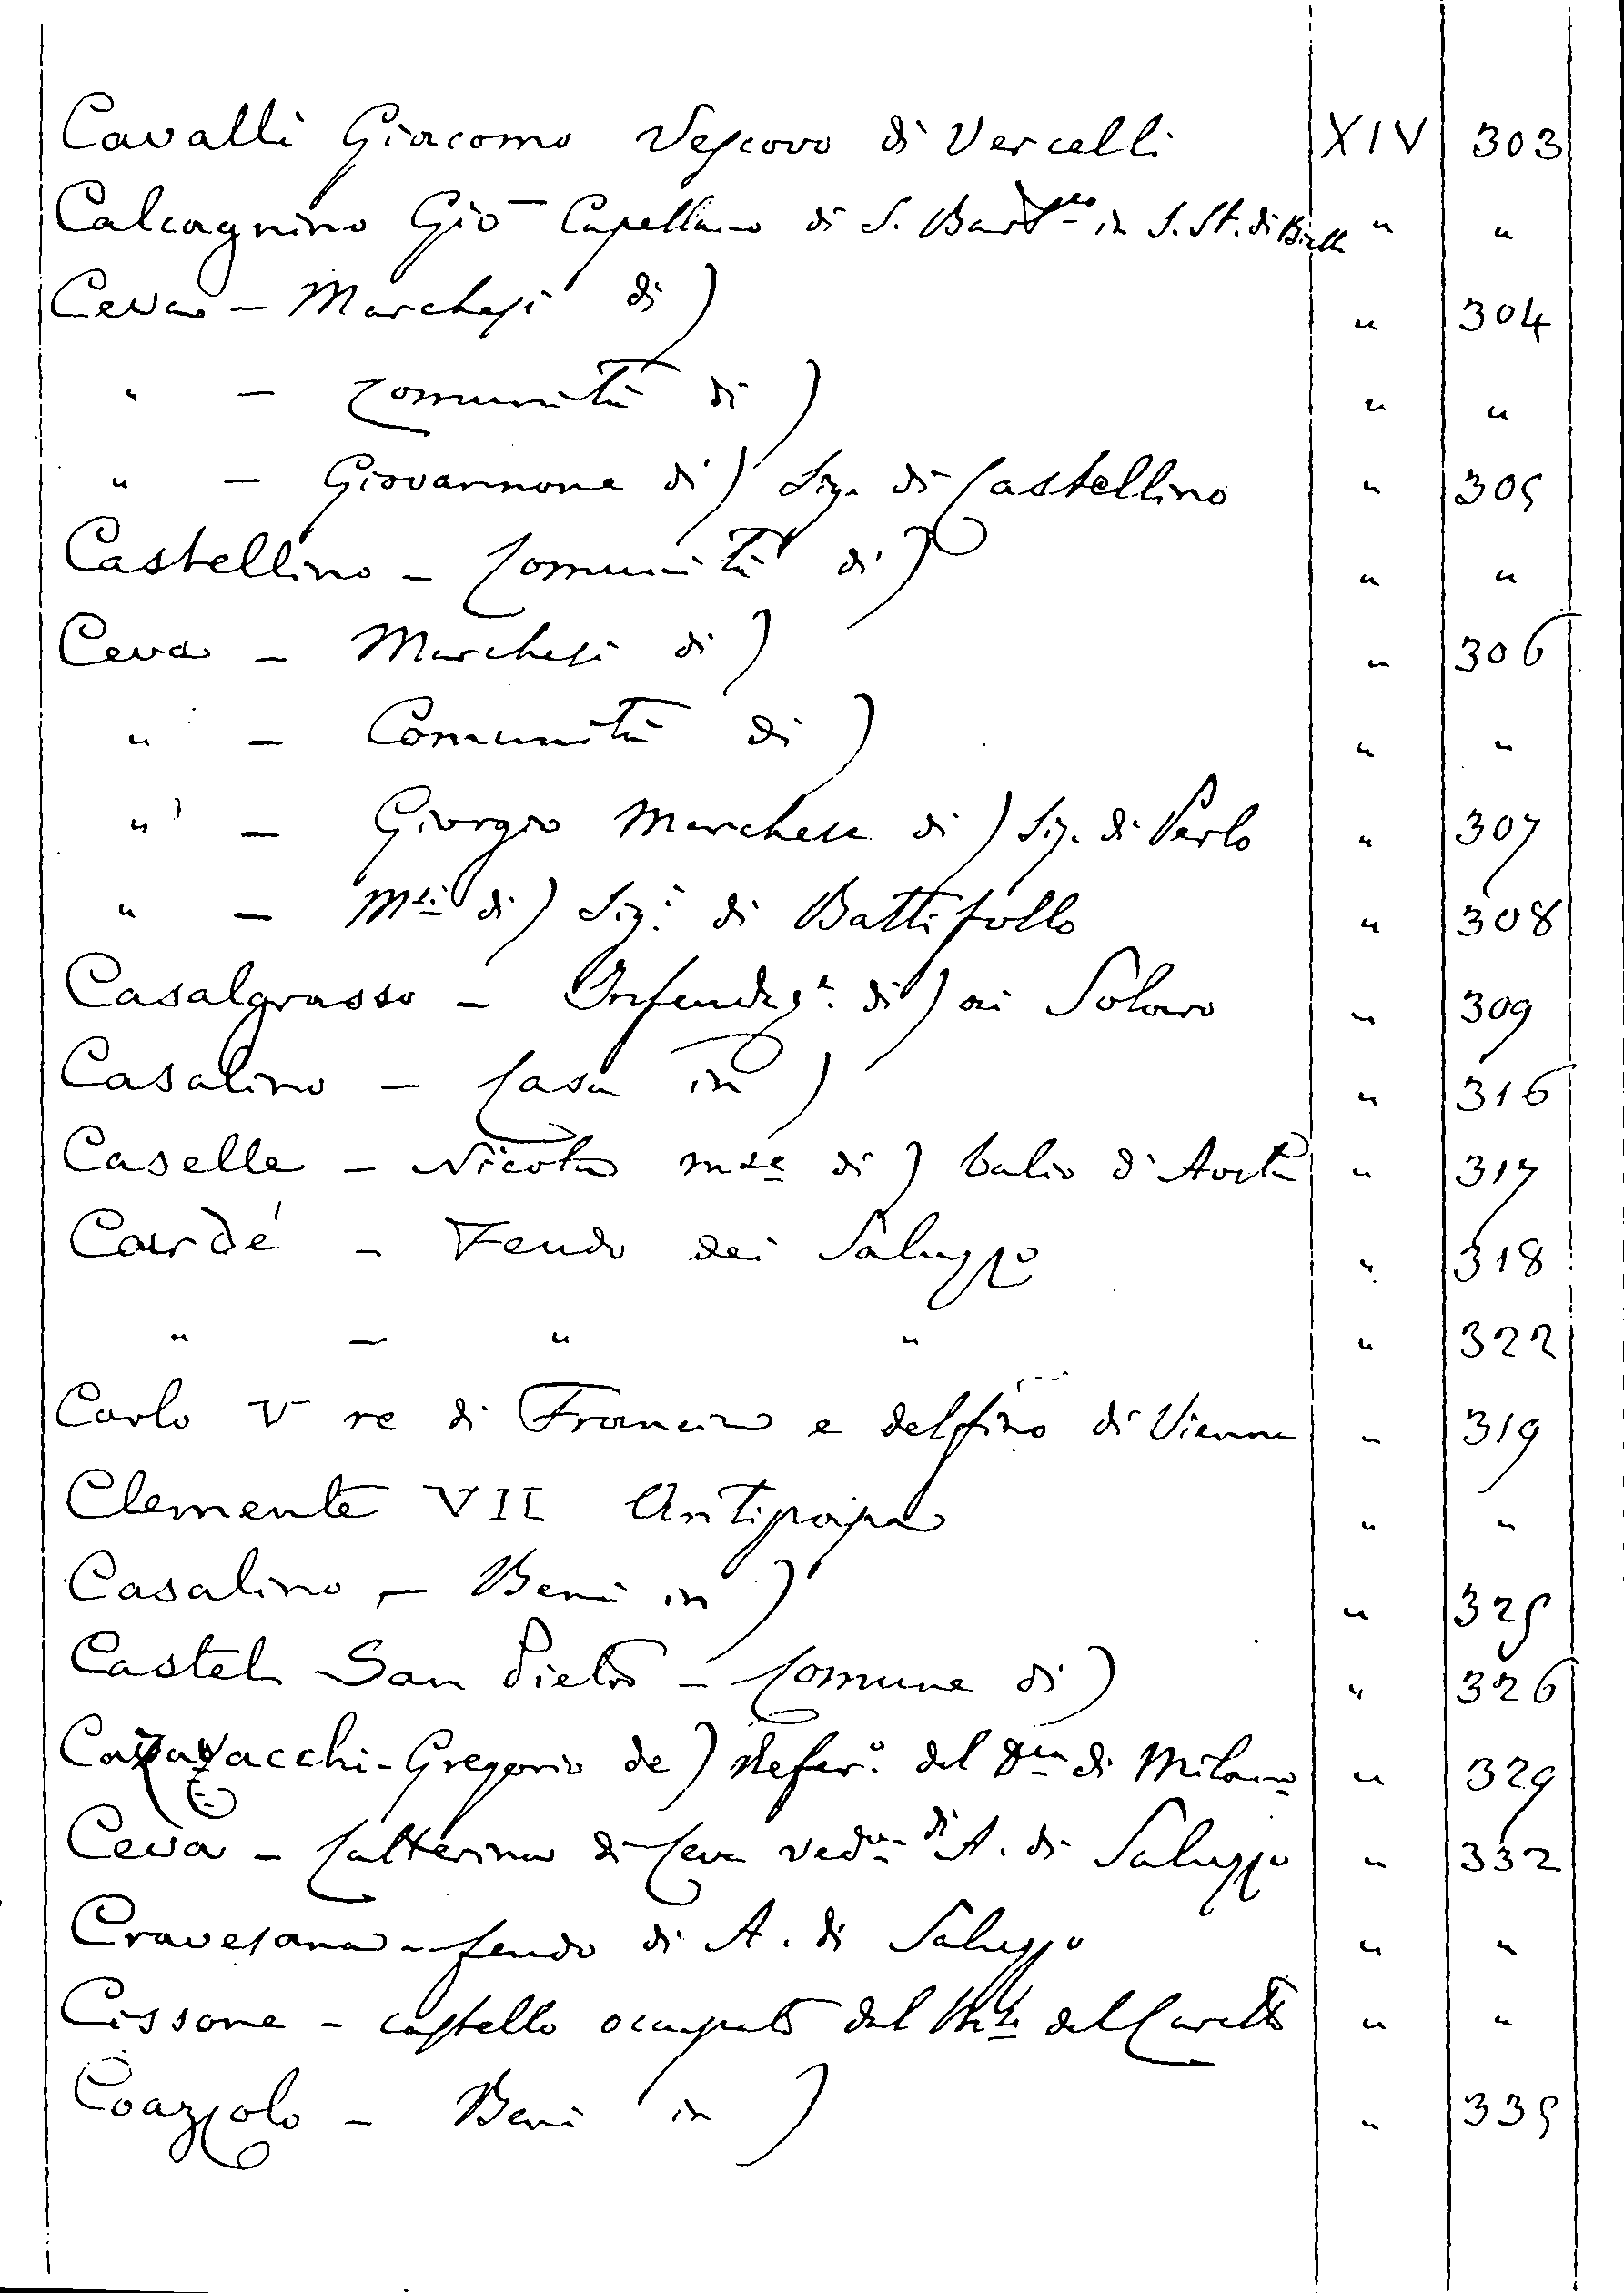 Cavalli Giacomo Vescovo di Vercelli XIV 303
Calcagnino Gio Capellano di S. Bart.eo in S. St. di Biella " "
Ceva - Marchesi di) " 304
" - Comunità di) " "
" - Giovannone di) Sig. di Castellino " 305
Castellino - Comunità di) " "
Ceva - Marchesi di) " 306
" - Comunità di) " "
" - Giorgio Marchese di) Sig. di Perlo " 307
" - Msi di) Sig.i di Battifollo " 308
Casalgrasso - Infeudaz.e di) ai Solaro " 309
Casalino - Casa in) " 316
Caselle - Nicola mse di) balio d'Aosta " 317
Cardé - Feudo dei Saluzzo " 318
" - " " " 322
Carlo V re di Francia e delfino di Vienna " 319
Clemente VII Antipapa " "
Casalino - Beni in) " 325
Castel San Pietro - Comune di) " 326
Gregorio de) Refer.o del Dca di Milano " 329
Ceva - Catterina di Ceva ved.a di A. di Saluzzo " 332
Cravesana - feudo di A. di Saluzzo " "
Cissone - castello occupato dal del Caretto " "
Coazzolo - Beni in) " 335